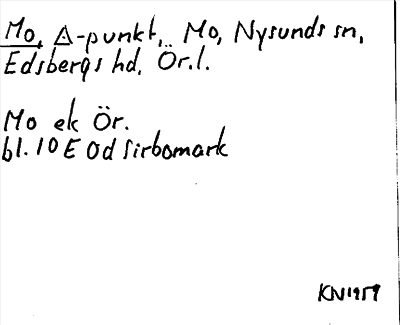 Mo, △-punkt, Mo, Nysunds sn,
Edsbergs hd, Ör.l.
Mo ek Ör.
bl. 10 E 0d Sirbomark
KN 1959